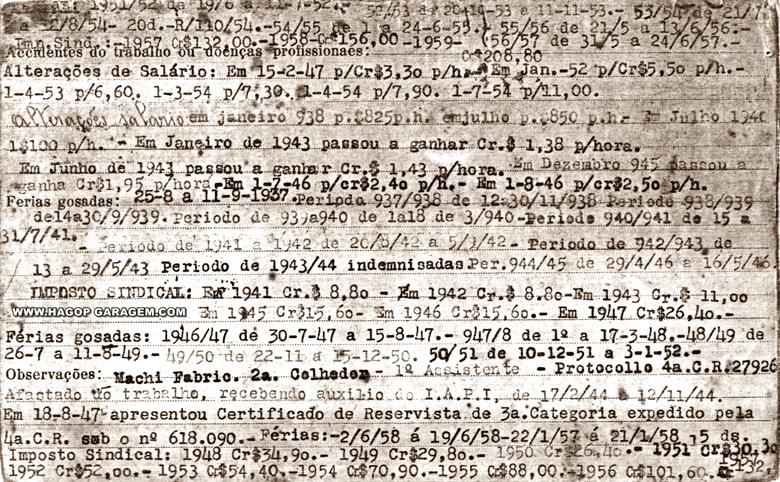 1951/52 de 19/6 a 11-7-52.- 52/53 de 20-10-53 a 11-11-53.- 53/54 de 21/7
a 2/8/54- 20d.-R/110/54.-54/55 de a 24-6-55. 55/56 de 21/5 a 13/6/56.-
Imp.Sind.:-1957 Cr$132,00.-1958-Cr$156,00-1959- 56/57 de 31/5 a 24/6/57.-
Accidentes do trabalho ou doenças profissionaes: Cr$208,80
Alterações de Salário: Em 15-2-47 p/Cr$3,30 p/h.- Em Jan.-52 p/Cr$5,50 p/h.-
1-4-53 p/6,60. 1-3-54 p/7,30. 1-4-54 p/7,90. 1-7-54 p/11,00.
alterações salario em janeiro 938 p.$825p.h. emjulho p.$850 p.h.- Em Julho 1940
1$100 p/h. - Em Janeiro de 1943 passou a ganhar Cr.$ 1,38 p/hora.
Em Junho de 1943 passou a ganhar Cr.$ 1,43 p/hora. Em Dezembro 945 passou a
ganha Cr$1,95 p/hora-Em 1-7-46 p/cr$2,40 p/h.- Em 1-8-46 p/cr$2,50 p/h.
Ferias gosadas: 25-8 a 11-9-1937.Periodo 937/938 de 12a30/11/938 Periode 938/939
de14a30/9/939.Periodo de 939a940 de 1a18 de 3/940-Periode 940/941 de 15 a
31/7/41. Periodo de 1941 a 1942 de 20/8/42 a 5/9/42- Periodo de 942/943 de
13 a 29/5/43 Periodo de 1943/44 indemnisadas.Per.944/45 de 29/4/46 a 16/5/46
IMPOSTO SINDICAL: Em 1941 Cr.$ 8,80 - Em 1942 Cr.$ 8.80-Em 1943 Cr.$ 11,00
WWW.HAGOP GARAGEM.COM Em 1945 Cr$15,60- Em 1946 Cr$15,60.- Em 1947 Cr$26,40.-
Férias gosadas: 1946/47 de 30-7-47 a 15-8-47.- 947/8 de 1º a 17-3-48.-48/49 de
26-7 a 11-8-49.- 49/50 de 22-11 a 15-12-50. 50/51 de 10-12-51 a 3-1-52.-
Observações: Machi Fabric. 2a. Colhedor - 1º Assistente - Protocollo 4a.C.R.27926
Afastado do trabalho, recebendo auxilio do I.A.P.I, de 17/2/44 a 12/11/44.
Em 18-8-47-apresentou Certificado de Reservista de 3a.Categoria expedido pela
4a.C.R. sob o nº 618.090.-Férias:-2/6/58 á 19/6/58-22/1/57 á 21/1/58 5 ds.
Imposto Sindical: 1948 Cr$34,90.- 1949 Cr$29,80.- 1950 Cr$26,40.- 1951 Cr$30,3
1952 Cr$52,00.- 1953 Cr$54,40.-1954 Cr$70,90.-1955 Cr$88,00.-1956 Cr$101,60.-